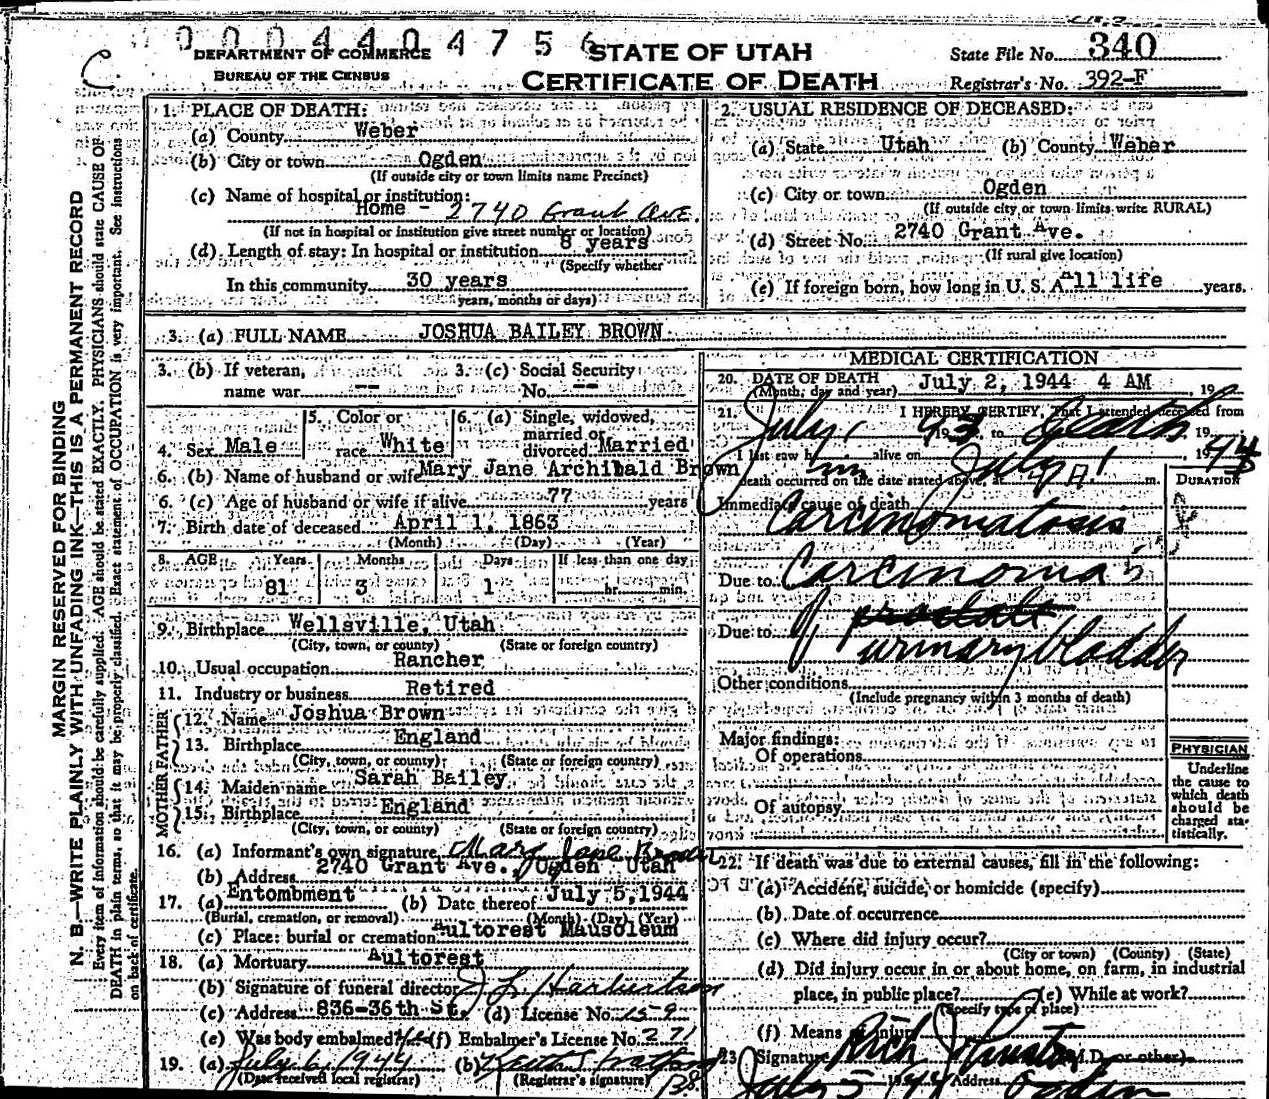 0004404756
DEPARTMENT OF COMMERCE
BUREAU OF THE CENSUS
STATE OF UTAH
CERTIFICATE OF DEATH
State File No. 340
Registrar's No. 392-F
C.
MARGIN RESERVED FOR BINDING
N. B.—WRITE PLAINLY WITH UNFADING INK—THIS IS A PERMANENT RECORD
Every item of information should be carefully supplied. AGE should be stated EXACTLY. PHYSICIANS should state CAUSE OF
DEATH in plain terms, so that it may be properly classified. Exact statement of OCCUPATION is very important. See instructions
on back of certificate.
1. PLACE OF DEATH:
(a) County Weber
(b) City or town Ogden
(If outside city or town limits name Precinct)
(c) Name of hospital or institution:
Home - 2740 Grant Ave.
(If not in hospital or institution give street number or location)
(d) Length of stay: In hospital or institution 8 years
(Specify whether
In this community 30 years
years, months or days)
2. USUAL RESIDENCE OF DECEASED:
(a) State Utah (b) County Weber
(c) City or town Ogden
(If outside city or town limits write RURAL)
(d) Street No. 2740 Grant Ave.
(If rural give location)
(e) If foreign born, how long in U. S. A. All life years.
3. (a) FULL NAME JOSHUA BAILEY BROWN
3. (b) If veteran, name war -- 3. (c) Social Security No. --
4. Sex Male 5. Color or race White 6. (a) Single, widowed, married or divorced Married
6. (b) Name of husband or wife Mary Jane Archibald Brown
6. (c) Age of husband or wife if alive 77 years
7. Birth date of deceased April 1, 1863
(Month) (Day) (Year)
8. AGE Years Months Days If less than one day
81 3 1 hr. min.
9. Birthplace Wellsville, Utah
(City, town, or county) (State or foreign country)
10. Usual occupation Rancher
11. Industry or business Retired
FATHER
12. Name Joshua Brown
13. Birthplace England
(City, town, or county) (State or foreign country)
MOTHER
14. Maiden name Sarah Bailey
15. Birthplace England
(City, town, or county) (State or foreign country)
16. (a) Informant's own signature Mary Jane Brown
(b) Address 2740 Grant Ave., Ogden Utah
17. (a) Entombment (b) Date thereof July 5, 1944
(Burial, cremation, or removal) (Month) (Day) (Year)
(c) Place: burial or cremation Aultorest Mausoleum
18. (a) Mortuary Aultorest
(b) Signature of funeral director J L Harbertson
(c) Address 836-36th St. (d) License No. 159
(e) Was body embalmed? Yes (f) Embalmer's License No. 271
19. (a) July 6, 1944 (b)
(Date received local registrar) (Registrar's signature)
MEDICAL CERTIFICATION
20. DATE OF DEATH July 2, 1944 4 AM 19
(Month, day and year)
21. I HEREBY CERTIFY, That I attended deceased from
July, 1943, to Death, 19
I last saw him alive on July 1, 1944
death occurred on the date stated above, at 4 A. m.
DURATION
Immediate cause of death
Carcinomatosis
Due to Carcinoma
Due to of prostate
urinary bladder
Other conditions
(Include pregnancy within 3 months of death)
Major findings:
Of operations
Of autopsy
PHYSICIAN
Underline
the cause to
which death
should be
charged sta-
tistically.
22. If death was due to external causes, fill in the following:
(a) Accident, suicide, or homicide (specify)
(b) Date of occurrence
(c) Where did injury occur?
(City or town) (County) (State)
(d) Did injury occur in or about home, on farm, in industrial
place, in public place? (e) While at work?
(Specify type of place)
(f) Means of injury
23. Signature Rich Johnston (M.D. or other)
July 5 1944 Address Ogden